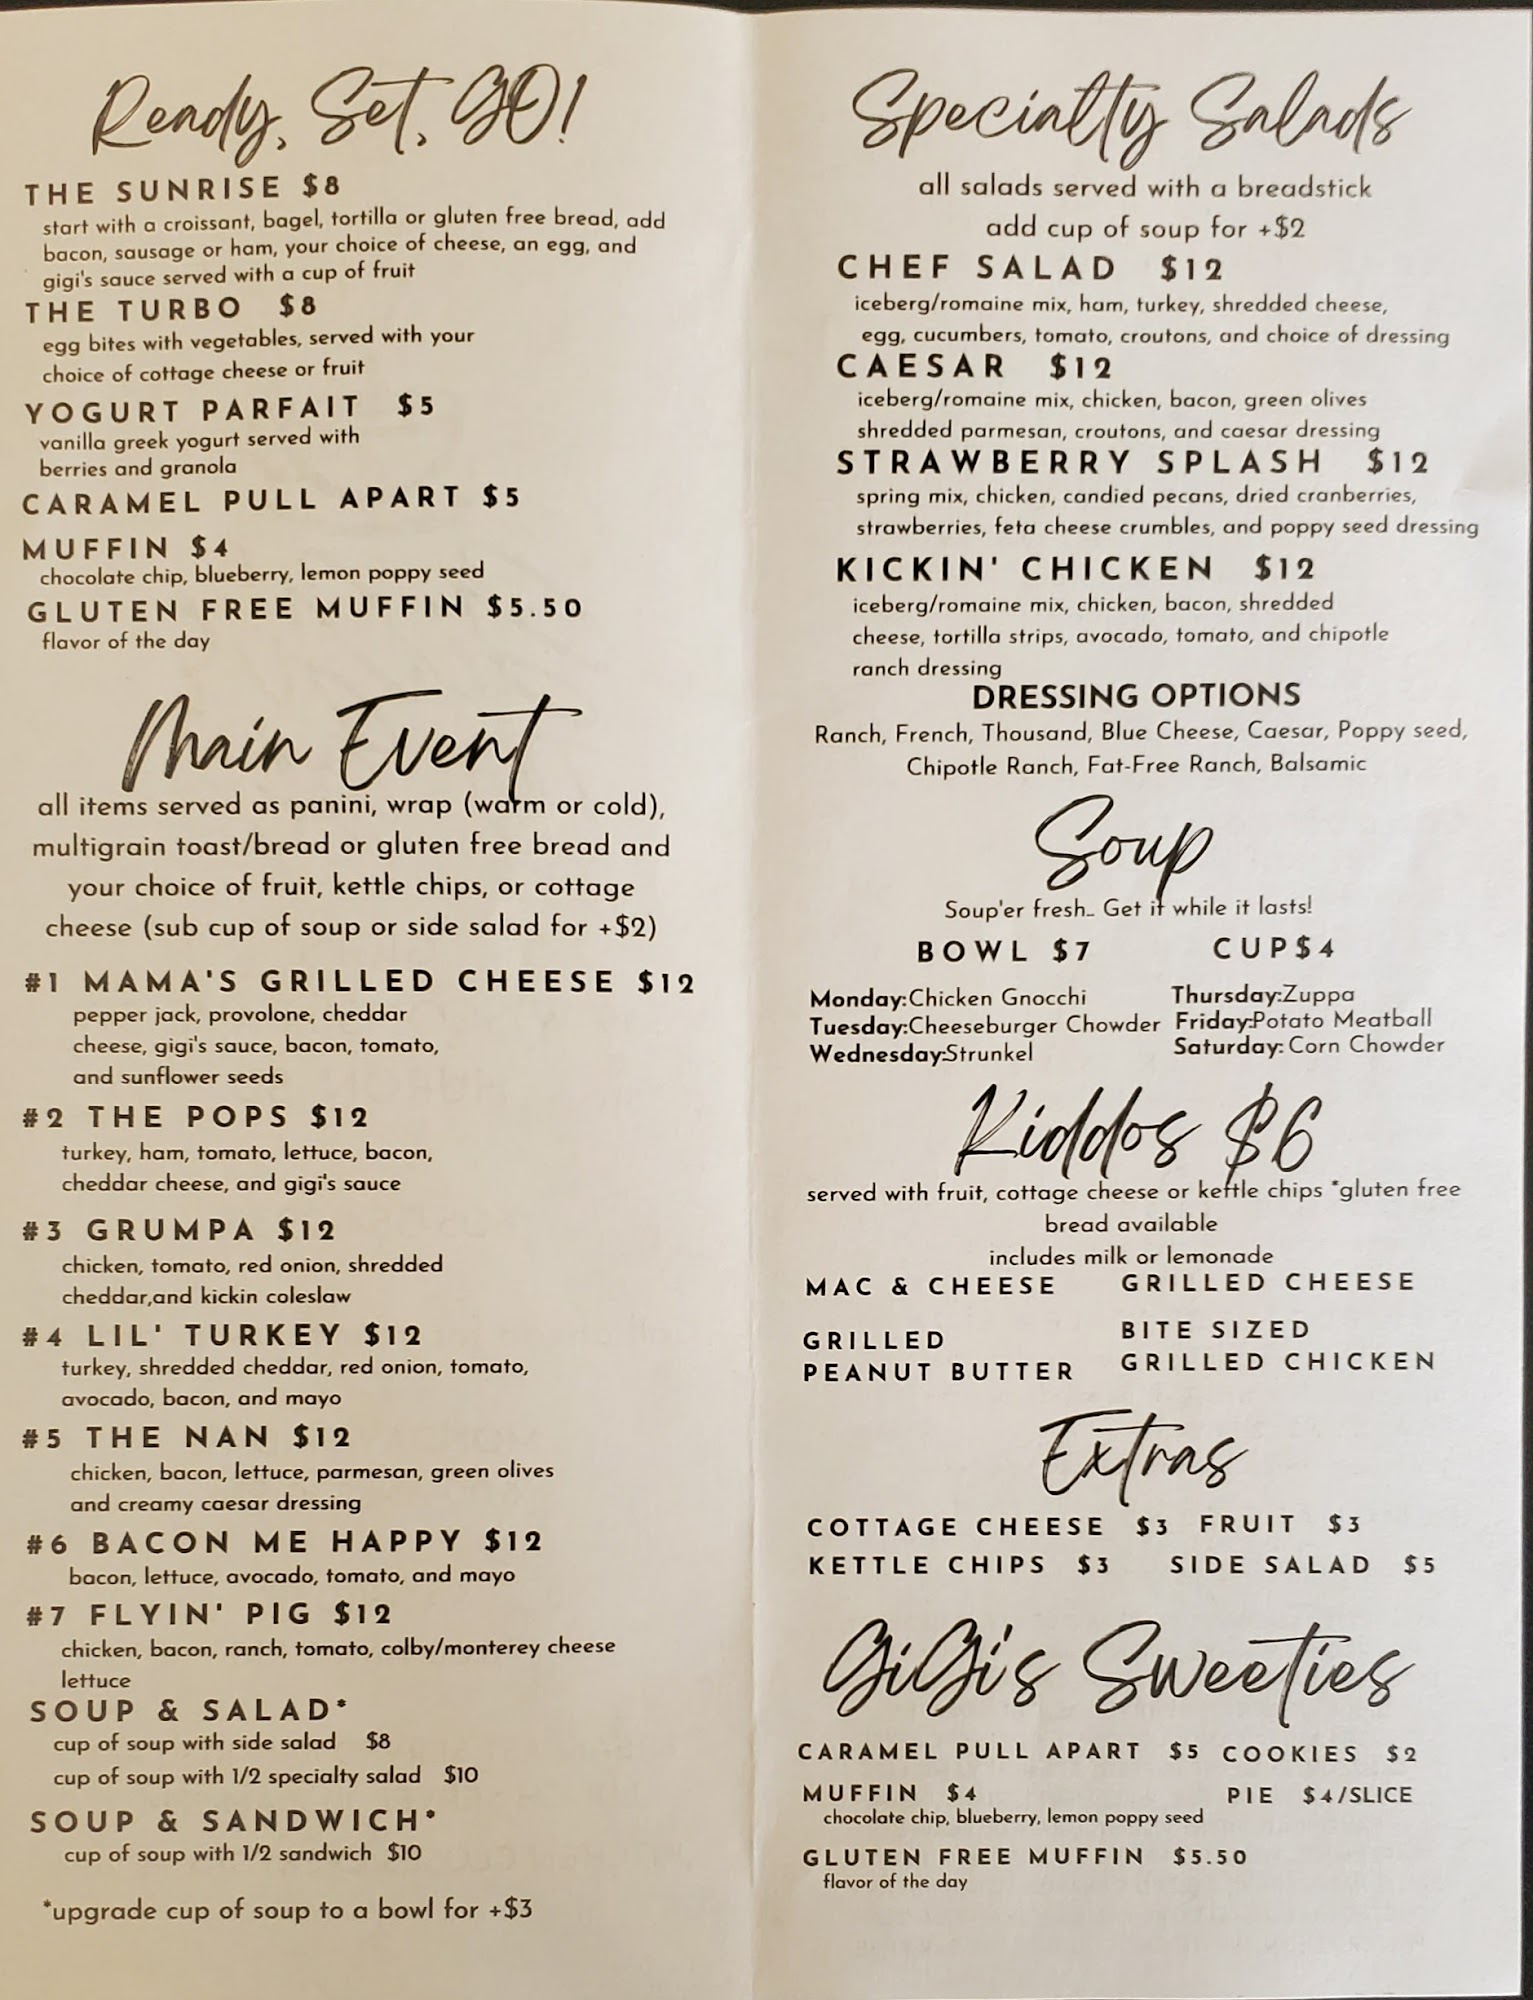 Ready, Set, GO!
THE SUNRISE $8
start with a croissant, bagel, tortilla or gluten free bread, add
bacon, sausage or ham, your choice of cheese, an egg, and
gigi's sauce served with a cup of fruit
THE TURBO $8
egg bites with vegetables, served with your
choice of cottage cheese or fruit
YOGURT PARFAIT $5
vanilla greek yogurt served with
berries and granola
CARAMEL PULL APART $5
MUFFIN $4
chocolate chip, blueberry, lemon poppy seed
GLUTEN FREE MUFFIN $5.50
flavor of the day
Main Event
all items served as panini, wrap (warm or cold),
multigrain toast/bread or gluten free bread and
your choice of fruit, kettle chips, or cottage
cheese (sub cup of soup or side salad for +$2)
#1 MAMA'S GRILLED CHEESE $12
pepper jack, provolone, cheddar
cheese, gigi's sauce, bacon, tomato,
and sunflower seeds
#2 THE POPS $12
turkey, ham, tomato, lettuce, bacon,
cheddar cheese, and gigi's sauce
#3 GRUMPA $12
chicken, tomato, red onion, shredded
cheddar,and kickin coleslaw
#4 LIL' TURKEY $12
turkey, shredded cheddar, red onion, tomato,
avocado, bacon, and mayo
#5 THE NAN $12
chicken, bacon, lettuce, parmesan, green olives
and creamy caesar dressing
#6 BACON ME HAPPY $12
bacon, lettuce, avocado, tomato, and mayo
#7 FLYIN' PIG $12
chicken, bacon, ranch, tomato, colby/monterey cheese
lettuce
SOUP & SALAD*
cup of soup with side salad $8
cup of soup with 1/2 specialty salad $10
SOUP & SANDWICH*
cup of soup with 1/2 sandwich $10
*upgrade cup of soup to a bowl for +$3
Specialty Salads
all salads served with a breadstick
add cup of soup for +$2
CHEF SALAD $12
iceberg/romaine mix, ham, turkey, shredded cheese,
egg, cucumbers, tomato, croutons, and choice of dressing
CAESAR $12
iceberg/romaine mix, chicken, bacon, green olives
shredded parmesan, croutons, and caesar dressing
STRAWBERRY SPLASH $12
spring mix, chicken, candied pecans, dried cranberries,
strawberries, feta cheese crumbles, and poppy seed dressing
KICKIN' CHICKEN $12
iceberg/romaine mix, chicken, bacon, shredded
cheese, tortilla strips, avocado, tomato, and chipotle
ranch dressing
DRESSING OPTIONS
Ranch, French, Thousand, Blue Cheese, Caesar, Poppy seed,
Chipotle Ranch, Fat-Free Ranch, Balsamic
Soup
Soup'er fresh.. Get it while it lasts!
BOWL $7 CUP$4
Monday:Chicken Gnocchi Thursday:Zuppa
Tuesday:Cheeseburger Chowder Friday:Potato Meatball
Wednesday:Strunkel Saturday: Corn Chowder
Kiddos $6
served with fruit, cottage cheese or kettle chips *gluten free
bread available
includes milk or lemonade
MAC & CHEESE GRILLED CHEESE
GRILLED
PEANUT BUTTER
BITE SIZED
GRILLED CHICKEN
Extras
COTTAGE CHEESE $3 FRUIT $3
KETTLE CHIPS $3 SIDE SALAD $5
GiGi's Sweeties
CARAMEL PULL APART $5 COOKIES $2
MUFFIN $4 PIE $4/SLICE
chocolate chip, blueberry, lemon poppy seed
GLUTEN FREE MUFFIN $5.50
flavor of the day